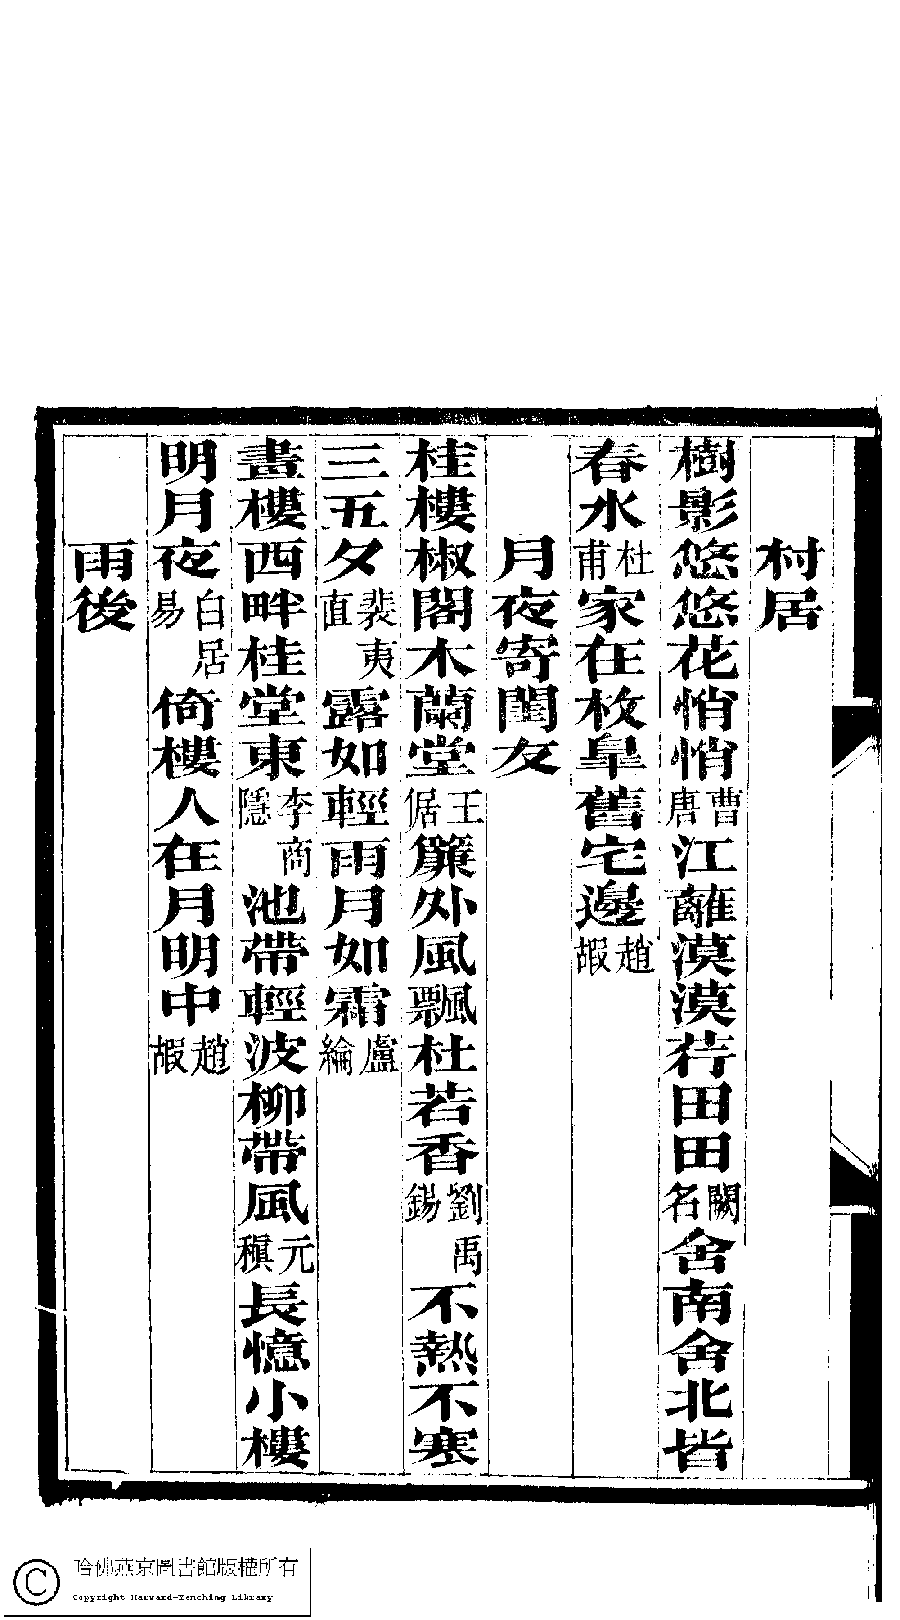 村居
樹影悠悠花悄悄曹唐江蘺漠漠荇田田闕名舍南舍北皆
春水杜甫家在枚皐舊宅邊趙嘏
月夜寄閨友
桂樓椒閣木蘭堂王倨簾外風飄杜若香劉禹錫不熱不寒
三五夕裴夷直露如輕雨月如霜盧綸
畫樓西畔桂堂東李商隱池帶輕波柳帶風元稹長憶小樓
明月夜白居易倚樓人在月明中趙嘏
雨後
哈佛燕京圖書館版權所有
Copyright Harvard-Yenching Library